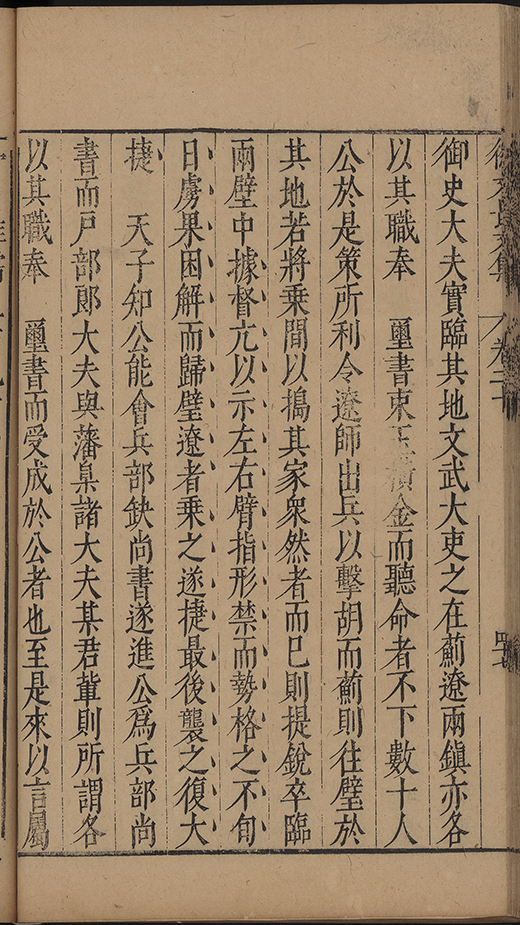 徐文長文集 卷二十
御史大夫實臨其地文武大吏之在薊遼兩鎮亦各
以其職奉 璽書束玉橫金而聽命者不下數十人
公於是策所利令遼師出兵以擊胡而薊則往壁於
其地若將乘間以搗其家衆然者而已則提銳卒臨
兩壁中據督亢以示左右臂指形禁而勢格之不旬
日虜果困解而歸壁遼者乘之遂捷最後襲之復大
捷 天子知公能會兵部缺尚書遂進公爲兵部尚
書而戶部郎大夫與藩臬諸大夫某君輩則所謂各
以其職奉 璽書而受成於公者也至是來以言屬